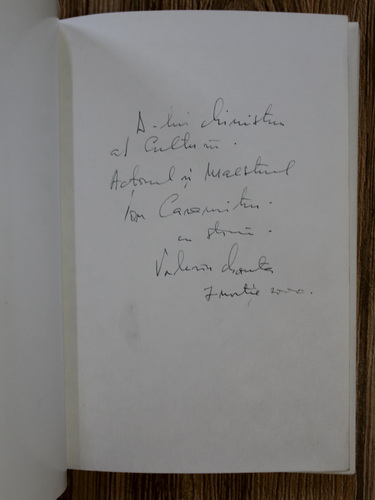 D-lui Ministru
al Culturii.
Actorul și Maestrul
Ion Caramitru.
cu stimă.
Valeriu
7 martie 2000.